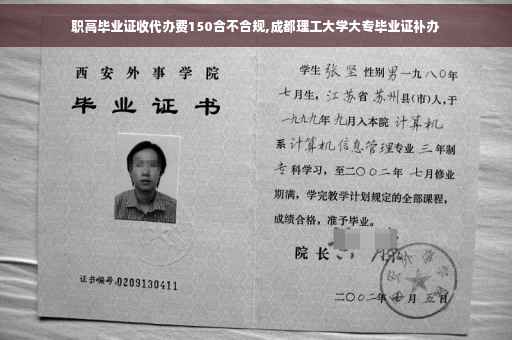 职高毕业证收代办费150合不合规,成都理工大学大专毕业证补办
西安外事学院
毕业证书
证书编号:0209130411
学生 张坚 性别 男 一九八〇年
七月生, 江苏省 苏州 县(市)人,于
一九九九年 九月入本院 计算机
系 计算机信息管理 专业 三 年制
专 科学习, 至二〇〇二年 七月修业
期满, 学完教学计划规定的全部课程,
成绩合格, 准予毕业。
院长
二〇〇二年 七月 五日